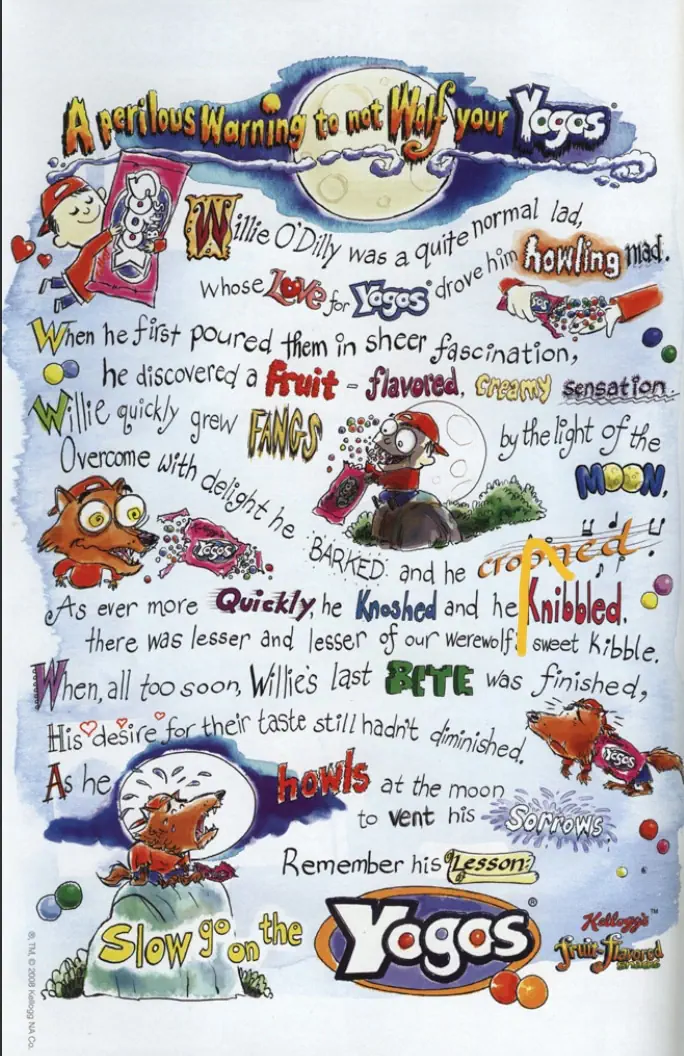 A perilous Warning to not Wolf your Yogos®
Yogos BITS
Willie O'Dilly was a quite normal lad,
whose Love for Yogos® drove him howling mad.
When he first poured them in sheer fascination,
he discovered a fruit-flavored, creamy sensation.
Willie quickly grew FANGS by the light of the MOON,
Overcome with delight he BARKED and he crooned
Yogos
As ever more Quickly, he Knoshed and he Knibbled,
there was lesser and lesser of our werewolf's sweet kibble.
When, all too soon, Willie's last BITE was finished,
His desire for their taste still hadn't diminished.
Yogos
As he howls at the moon
to vent his Sorrows,
Remember his Lesson:
Slow go on the Yogos®
Kellogg's™
fruit-flavored
®, TM, © 2008 Kellogg NA Co.